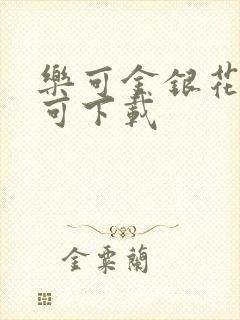 樂可金銀花
可下載
金粟蘭